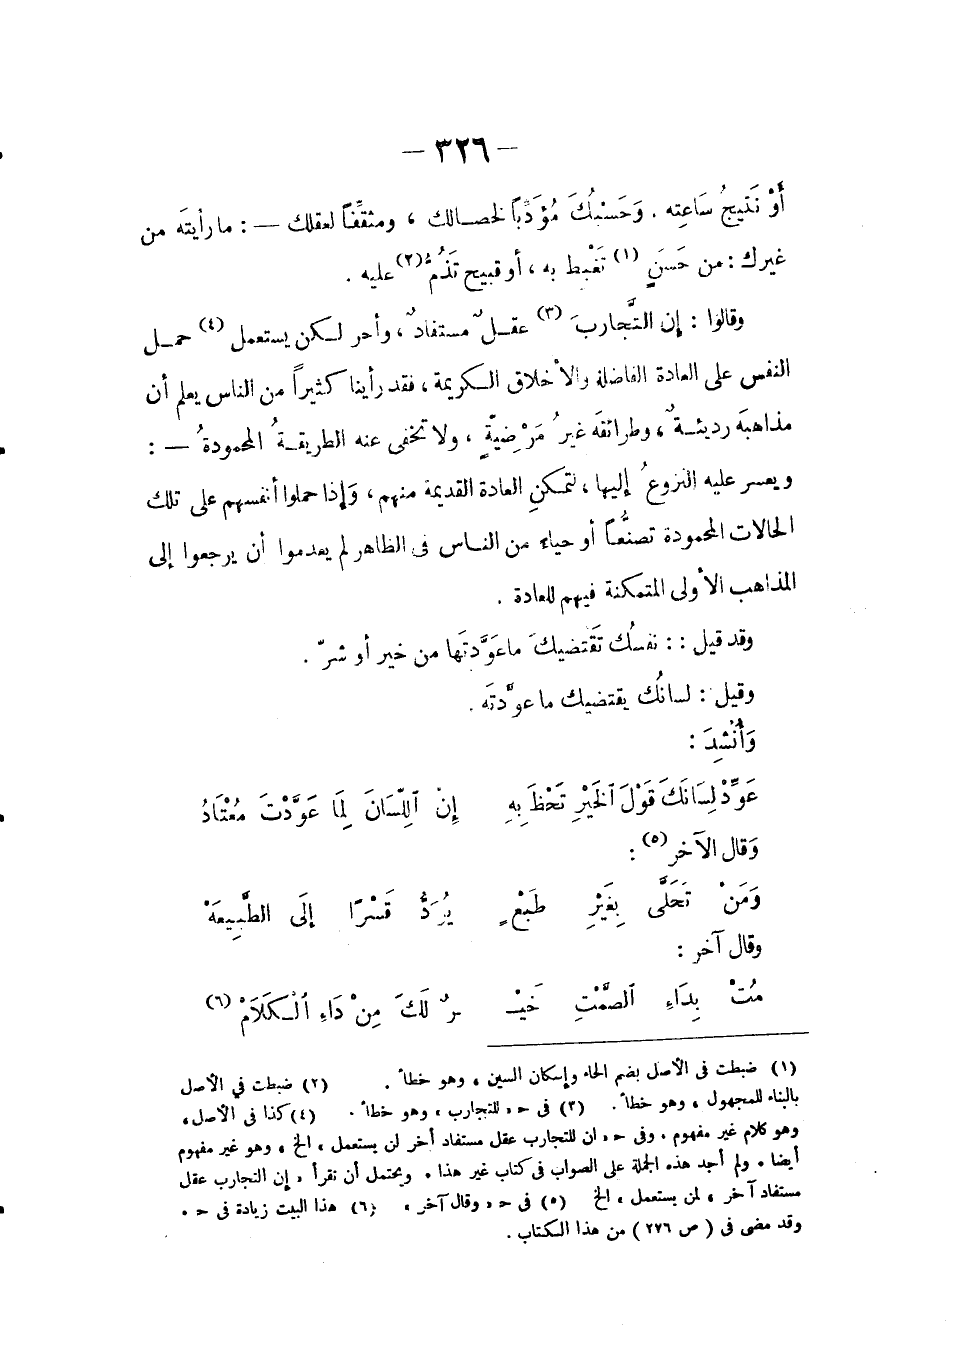 — ٣٢٦ —
أَوْ نَتَيِجُ سَاعَتِه . وَحَسْبُكَ مُؤَدِّباً لخصالك ، ومثقِّفاً لعقلك — : ما رأيتَه من
غيرك : من حَسَنٍ (١) تَغْبط به ، أو قبيح تَذُمُّ (٢) عليه .
وقالوا : إن التَّجاربَ (٣) عقلٌ مستفادٌ ، وأحر لكن يستعمل (٤) حمل
النفس على العادة الفاضلة والأخلاق الكريمة ، فقد رأينا كثيراً من الناس يعلم أن
مذاهبَه رديئةٌ ، وطرائقَه غيرُ مَرْضِيَّةٍ ، ولا تخفى عنه الطريقةُ المحمودةُ — :
ويعسر عليه النزوعُ إليها ، لتمكنِ العادة القديمة منهم ، وَإذا حملوا أنفسهم على تلك
الحالات المحمودة تصنُّعاً أو حياءً من الناس فى الظاهر لم يعدموا أن يرجعوا إلى
المذاهب الأولى المتمكنة فيهم للعادة .
وقد قيل : : نفسُك تَقْتضيكَ ماعَوَّدتَها من خير أو شرّ .
وقيل : لسانُك يقتضيك ما عوَّدتَه .
وَأُنْشِدَ :
عَوِّدْ لِسَانَكَ قَوْلَ الْخَيْرِ تَحْظَ بِهِ إِنَّ اللِّسَانَ لِمَا عَوَّدْتَ مُعْتَادُ
وَقال الآخر (٥) :
وَمَنْ تَحَلَّى بِغَيْرِ طَبْعٍ يُرَدُّ قَسْرًا إِلَى الطَّبِيعَهْ
وقال آخر :
مُتْ بِدَاءِ الصَّمْتِ خَيْـ ـرٌ لَكَ مِنْ دَاءِ الْكَلَامْ (٦)
(١) ضبطت فى الأصل بضم الحاء وإسكان السين ، وهو خطأ . (٢) ضبطت في الأصل
بالبناء للمجهول ، وهو خطأ . (٣) فى حـ « للتجارب » وهو خطأ . (٤) كذا فى الأصل ،
وهو كلام غير مفهوم . وفى حـ « ان للتجارب عقل مستفاد أخر لن يستعمل » الخ ، وهو غير مفهوم
أيضا . ولم أجد هذه الجملة على الصواب فى كتاب غير هذا . ويحتمل أن نقرأ « إن التجارب عقل
مستفاد آخر ، لمن يستعمل » الخ (٥) فى حـ « وقال آخر » (٦) هذا البيت زيادة فى حـ .
وقد مضى فى ( ص ٢٧٦ ) من هذا الكتاب .